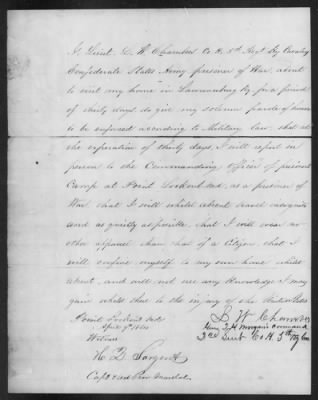 I, Lieut. L. W. Chambers Co. H. 5th Regt Ky Cavalry
Confederate States Army prisoner of War, about
to visit my home in Lawrenceburg Ky for a period
of thirty days do give my solemn parole of honor
to be enforced according to Military law that at
the expiration of thirty days, I will report in
person to the Commanding officer of prisoners
Camp at Point Lookout Md., as a prisoner of
War that I will whilst absent travel incognito
and as quietly as possible, that I will wear no
other apparel than that of a Citizen, that I
will confine myself to my own home whilst
absent, and will not use any knowledge I may
gain whilst there to the injury of the United States
Point Lookout Md
April 9th
Witness
H. D. Sargent
Capt & Provo Marshal
L W Chambers
Genl J H Morgan's Command
2nd Lieut Co H. 5th Ky Cav